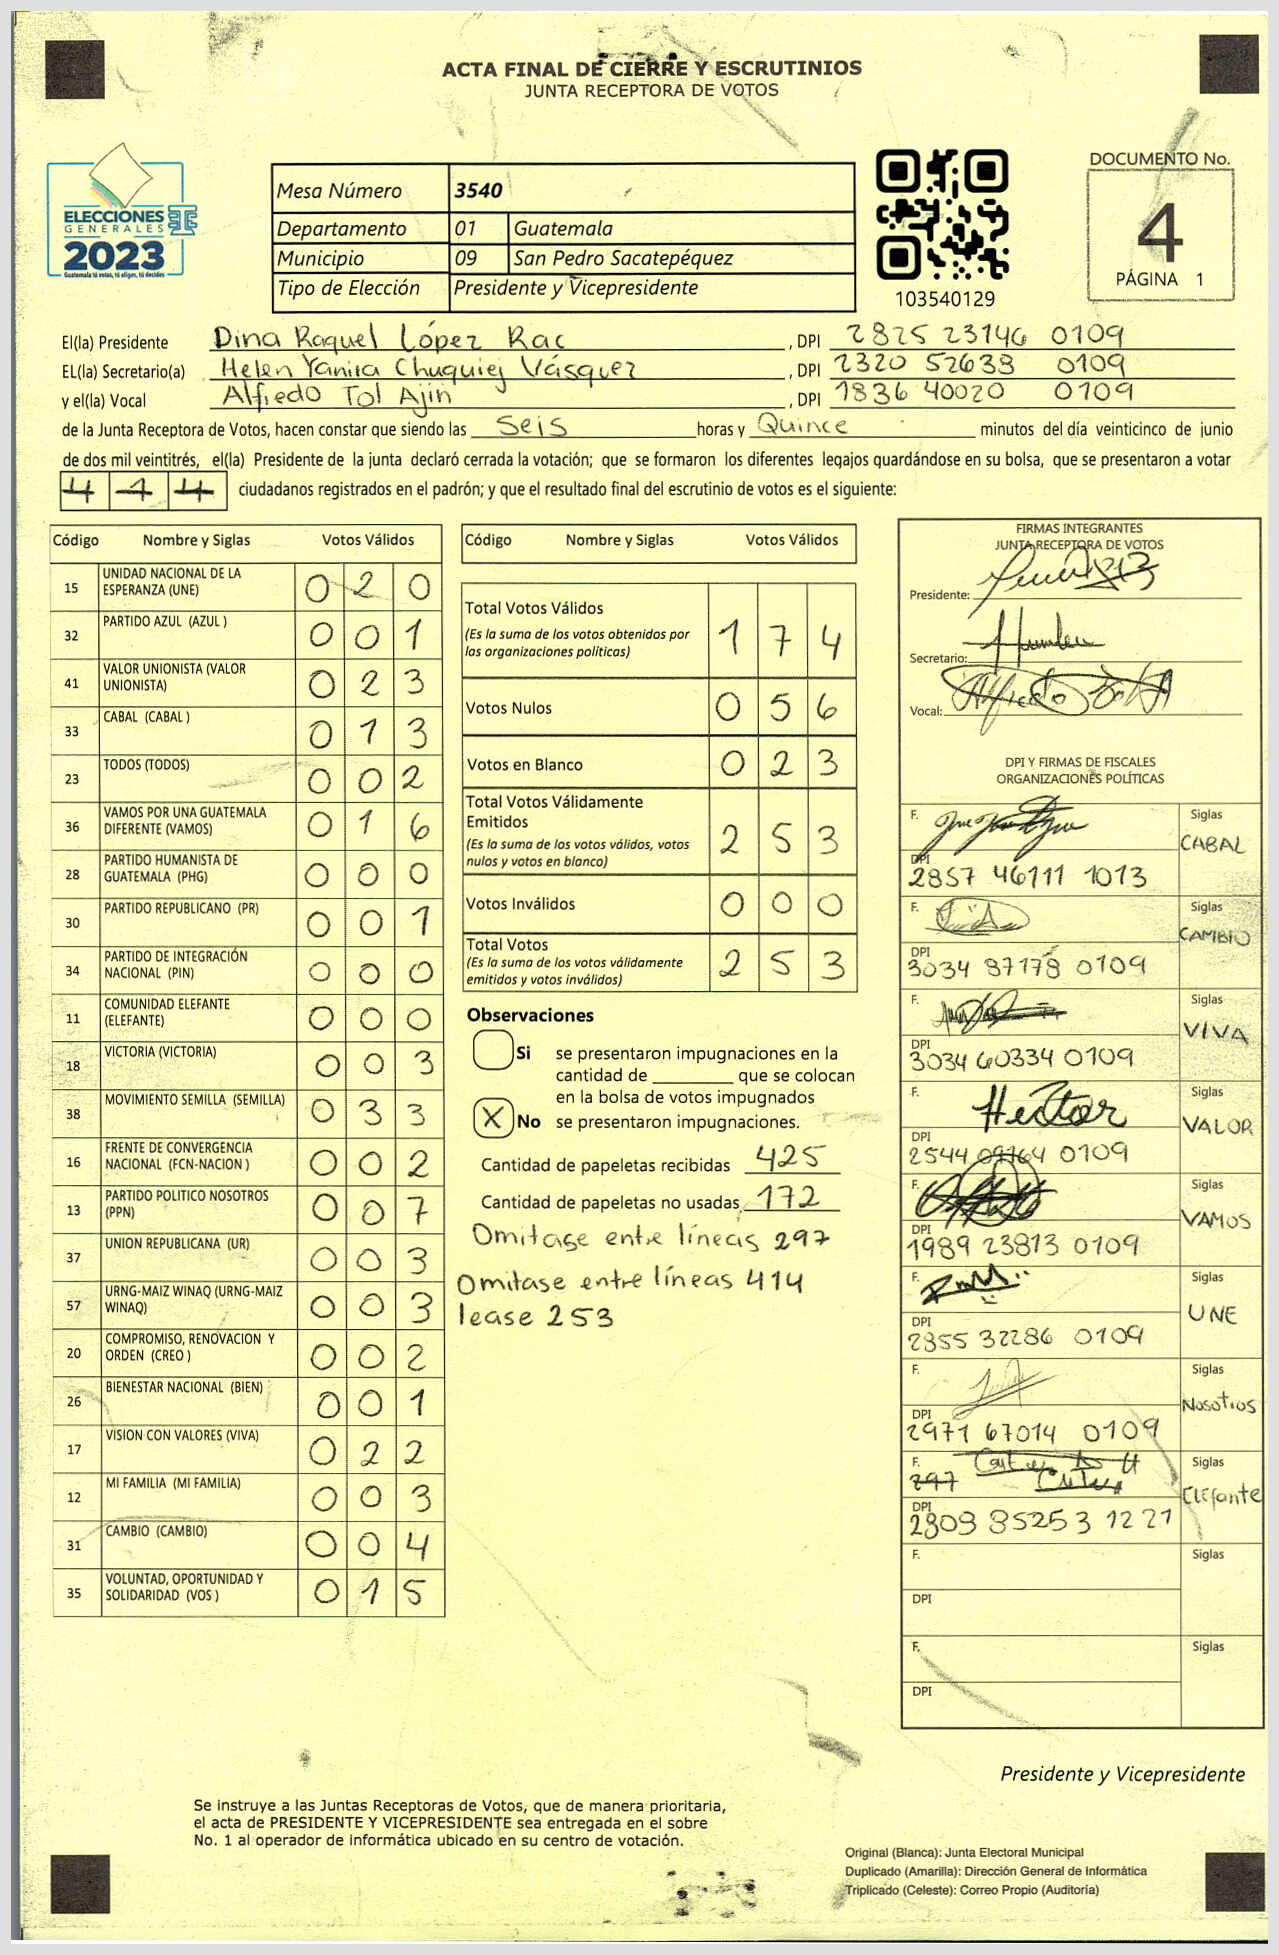 ACTA FINAL DE CIERRE Y ESCRUTINIOS
JUNTA RECEPTORA DE VOTOS
ELECCIONES
GENERALES
2023
Guatemala tú votas, tú eliges, tú decides
Mesa Número 3540
Departamento 01 Guatemala
Municipio 09 San Pedro Sacatepéquez
Tipo de Elección Presidente y Vicepresidente
103540129
DOCUMENTO No.
4
PÁGINA 1
El(la) Presidente Dina Raquel López Rac, DPI 2825 23146 0109
EL(la) Secretario(a) Helen Yanira Chuquiej Vásquez, DPI 2320 52638 0109
y el(la) Vocal Alfredo Tol Ajin, DPI 1836 40020 0109
de la Junta Receptora de Votos, hacen constar que siendo las Seis horas y Quince minutos del día veinticinco de junio
de dos mil veintitrés, el(la) Presidente de la junta declaró cerrada la votación; que se formaron los diferentes legajos guardándose en su bolsa, que se presentaron a votar
414 ciudadanos registrados en el padrón; y que el resultado final del escrutinio de votos es el siguiente:
Código Nombre y Siglas Votos Válidos
15 UNIDAD NACIONAL DE LA ESPERANZA (UNE) 0 2 0
32 PARTIDO AZUL (AZUL ) 0 0 1
41 VALOR UNIONISTA (VALOR UNIONISTA) 0 2 3
33 CABAL (CABAL ) 0 1 3
23 TODOS (TODOS) 0 0 2
36 VAMOS POR UNA GUATEMALA DIFERENTE (VAMOS) 0 1 6
28 PARTIDO HUMANISTA DE GUATEMALA (PHG) 0 0 0
30 PARTIDO REPUBLICANO (PR) 0 0 1
34 PARTIDO DE INTEGRACIÓN NACIONAL (PIN) 0 0 0
11 COMUNIDAD ELEFANTE (ELEFANTE) 0 0 0
18 VICTORIA (VICTORIA) 0 0 3
38 MOVIMIENTO SEMILLA (SEMILLA) 0 3 3
16 FRENTE DE CONVERGENCIA NACIONAL (FCN-NACION ) 0 0 2
13 PARTIDO POLITICO NOSOTROS (PPN) 0 0 7
37 UNION REPUBLICANA (UR) 0 0 3
57 URNG-MAIZ WINAQ (URNG-MAIZ WINAQ) 0 0 3
20 COMPROMISO, RENOVACION Y ORDEN (CREO ) 0 0 2
26 BIENESTAR NACIONAL (BIEN) 0 0 1
17 VISION CON VALORES (VIVA) 0 2 2
12 MI FAMILIA (MI FAMILIA) 0 0 3
31 CAMBIO (CAMBIO) 0 0 4
35 VOLUNTAD, OPORTUNIDAD Y SOLIDARIDAD (VOS ) 0 1 5
Código Nombre y Siglas Votos Válidos
Total Votos Válidos 1 7 4
(Es la suma de los votos obtenidos por
las organizaciones políticas)
Votos Nulos 0 5 6
Votos en Blanco 0 2 3
Total Votos Válidamente
Emitidos 2 5 3
(Es la suma de los votos válidos, votos
nulos y votos en blanco)
Votos Inválidos 0 0 0
Total Votos 2 5 3
(Es la suma de los votos válidamente
emitidos y votos inválidos)
Observaciones
Si se presentaron impugnaciones en la
cantidad de ________ que se colocan
en la bolsa de votos impugnados
X No se presentaron impugnaciones.
Cantidad de papeletas recibidas 425
Cantidad de papeletas no usadas 172
Omitase entre líneas 297
Omitase entre líneas 414
lease 253
FIRMAS INTEGRANTES
JUNTA RECEPTORA DE VOTOS
Presidente:
Secretario:
Vocal:
DPI Y FIRMAS DE FISCALES
ORGANIZACIONES POLÍTICAS
F. Siglas
CABAL
DPI
2857 46111 1013
F. Siglas
CAMBIO
DPI
3034 87178 0109
F. Siglas
VIVA
DPI
3034 60334 0109
F. Hector Siglas
VALOR
DPI
2544 0109
F. Siglas
VAMOS
DPI
1989 23813 0109
F. Siglas
UNE
DPI
2855 32286 0109
F. Siglas
Nosotros
DPI
2971 67014 0109
F. Siglas
297
Elefante
DPI
2809 85253 1221
F. Siglas
DPI
F. Siglas
DPI
Presidente y Vicepresidente
Se instruye a las Juntas Receptoras de Votos, que de manera prioritaria,
el acta de PRESIDENTE Y VICEPRESIDENTE sea entregada en el sobre
No. 1 al operador de informática ubicado en su centro de votación.
Original (Blanca): Junta Electoral Municipal
Duplicado (Amarilla): Dirección General de Informática
Triplicado (Celeste): Correo Propio (Auditoría)